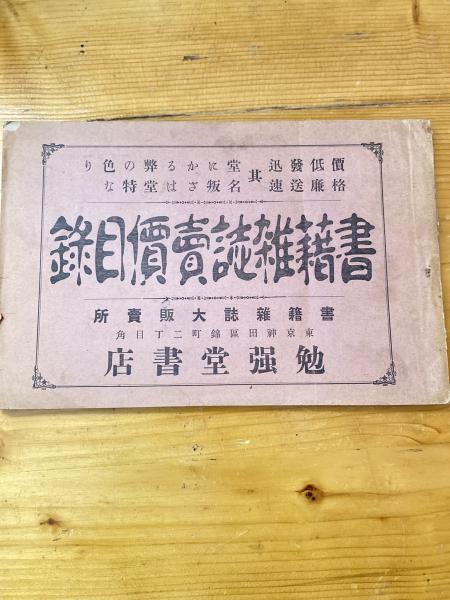 價格低廉發送迅速其堂名に叛かさるは弊堂の特色なり
書籍雜誌賣價目錄
書籍雜誌大販賣所
東京神田區錦町二丁目角
勉强堂書店